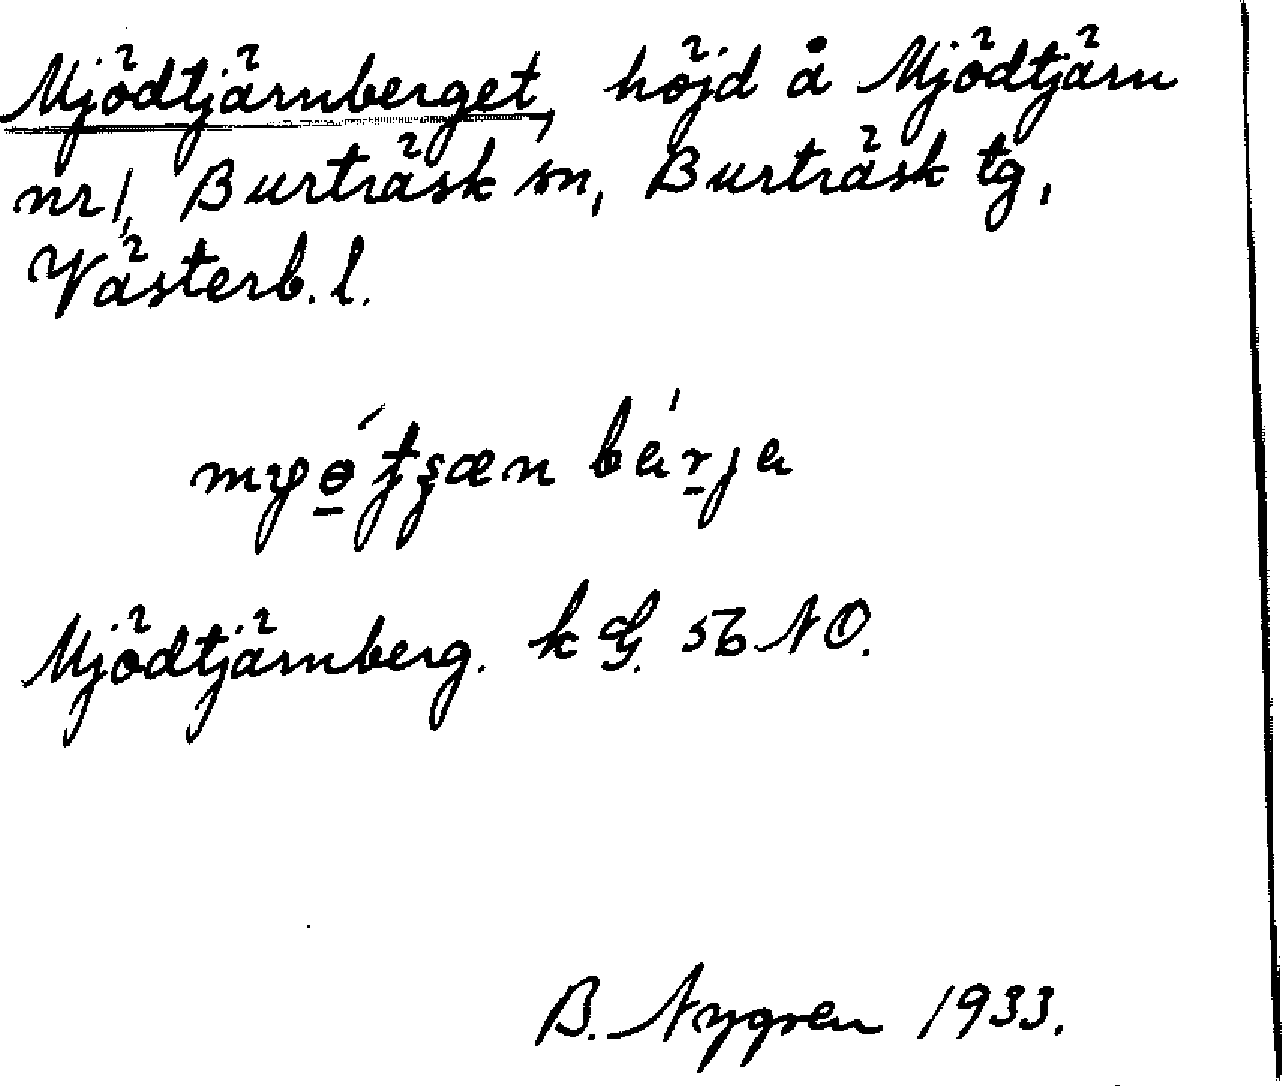 Mjödtjärnberget, höjd å Mjödtjärn
nr 1, Burträsk sn, Burträsk tg,
Västerb. l.
Mjödtjärnberg. k G. 56 NO.
B. Nygren 1933.